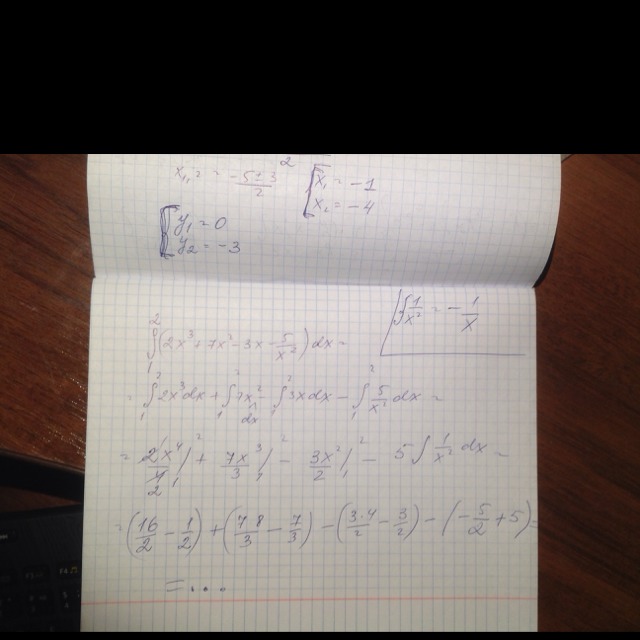 x₁,₂ = (-5±3)/2 [x₁ = -1
x₂ = -4
[y₁ = 0
y₂ = -3
∫ 1/x² = -1/x
∫₁² (2x³ + 7x² - 3x - 5/x²) dx =
= ∫₁² 2x³dx + ∫₁² 7x² dx - ∫₁² 3xdx - ∫₁² 5/x² dx =
= 2x⁴/4 |₁² + 7x³/3 |₁² - 3x²/2 |₁² - 5∫ 1/x² dx =
= (16/2 - 1/2) + (7·8/3 - 7/3) - (3·4/2 - 3/2) - (-5/2 + 5) =
= ...